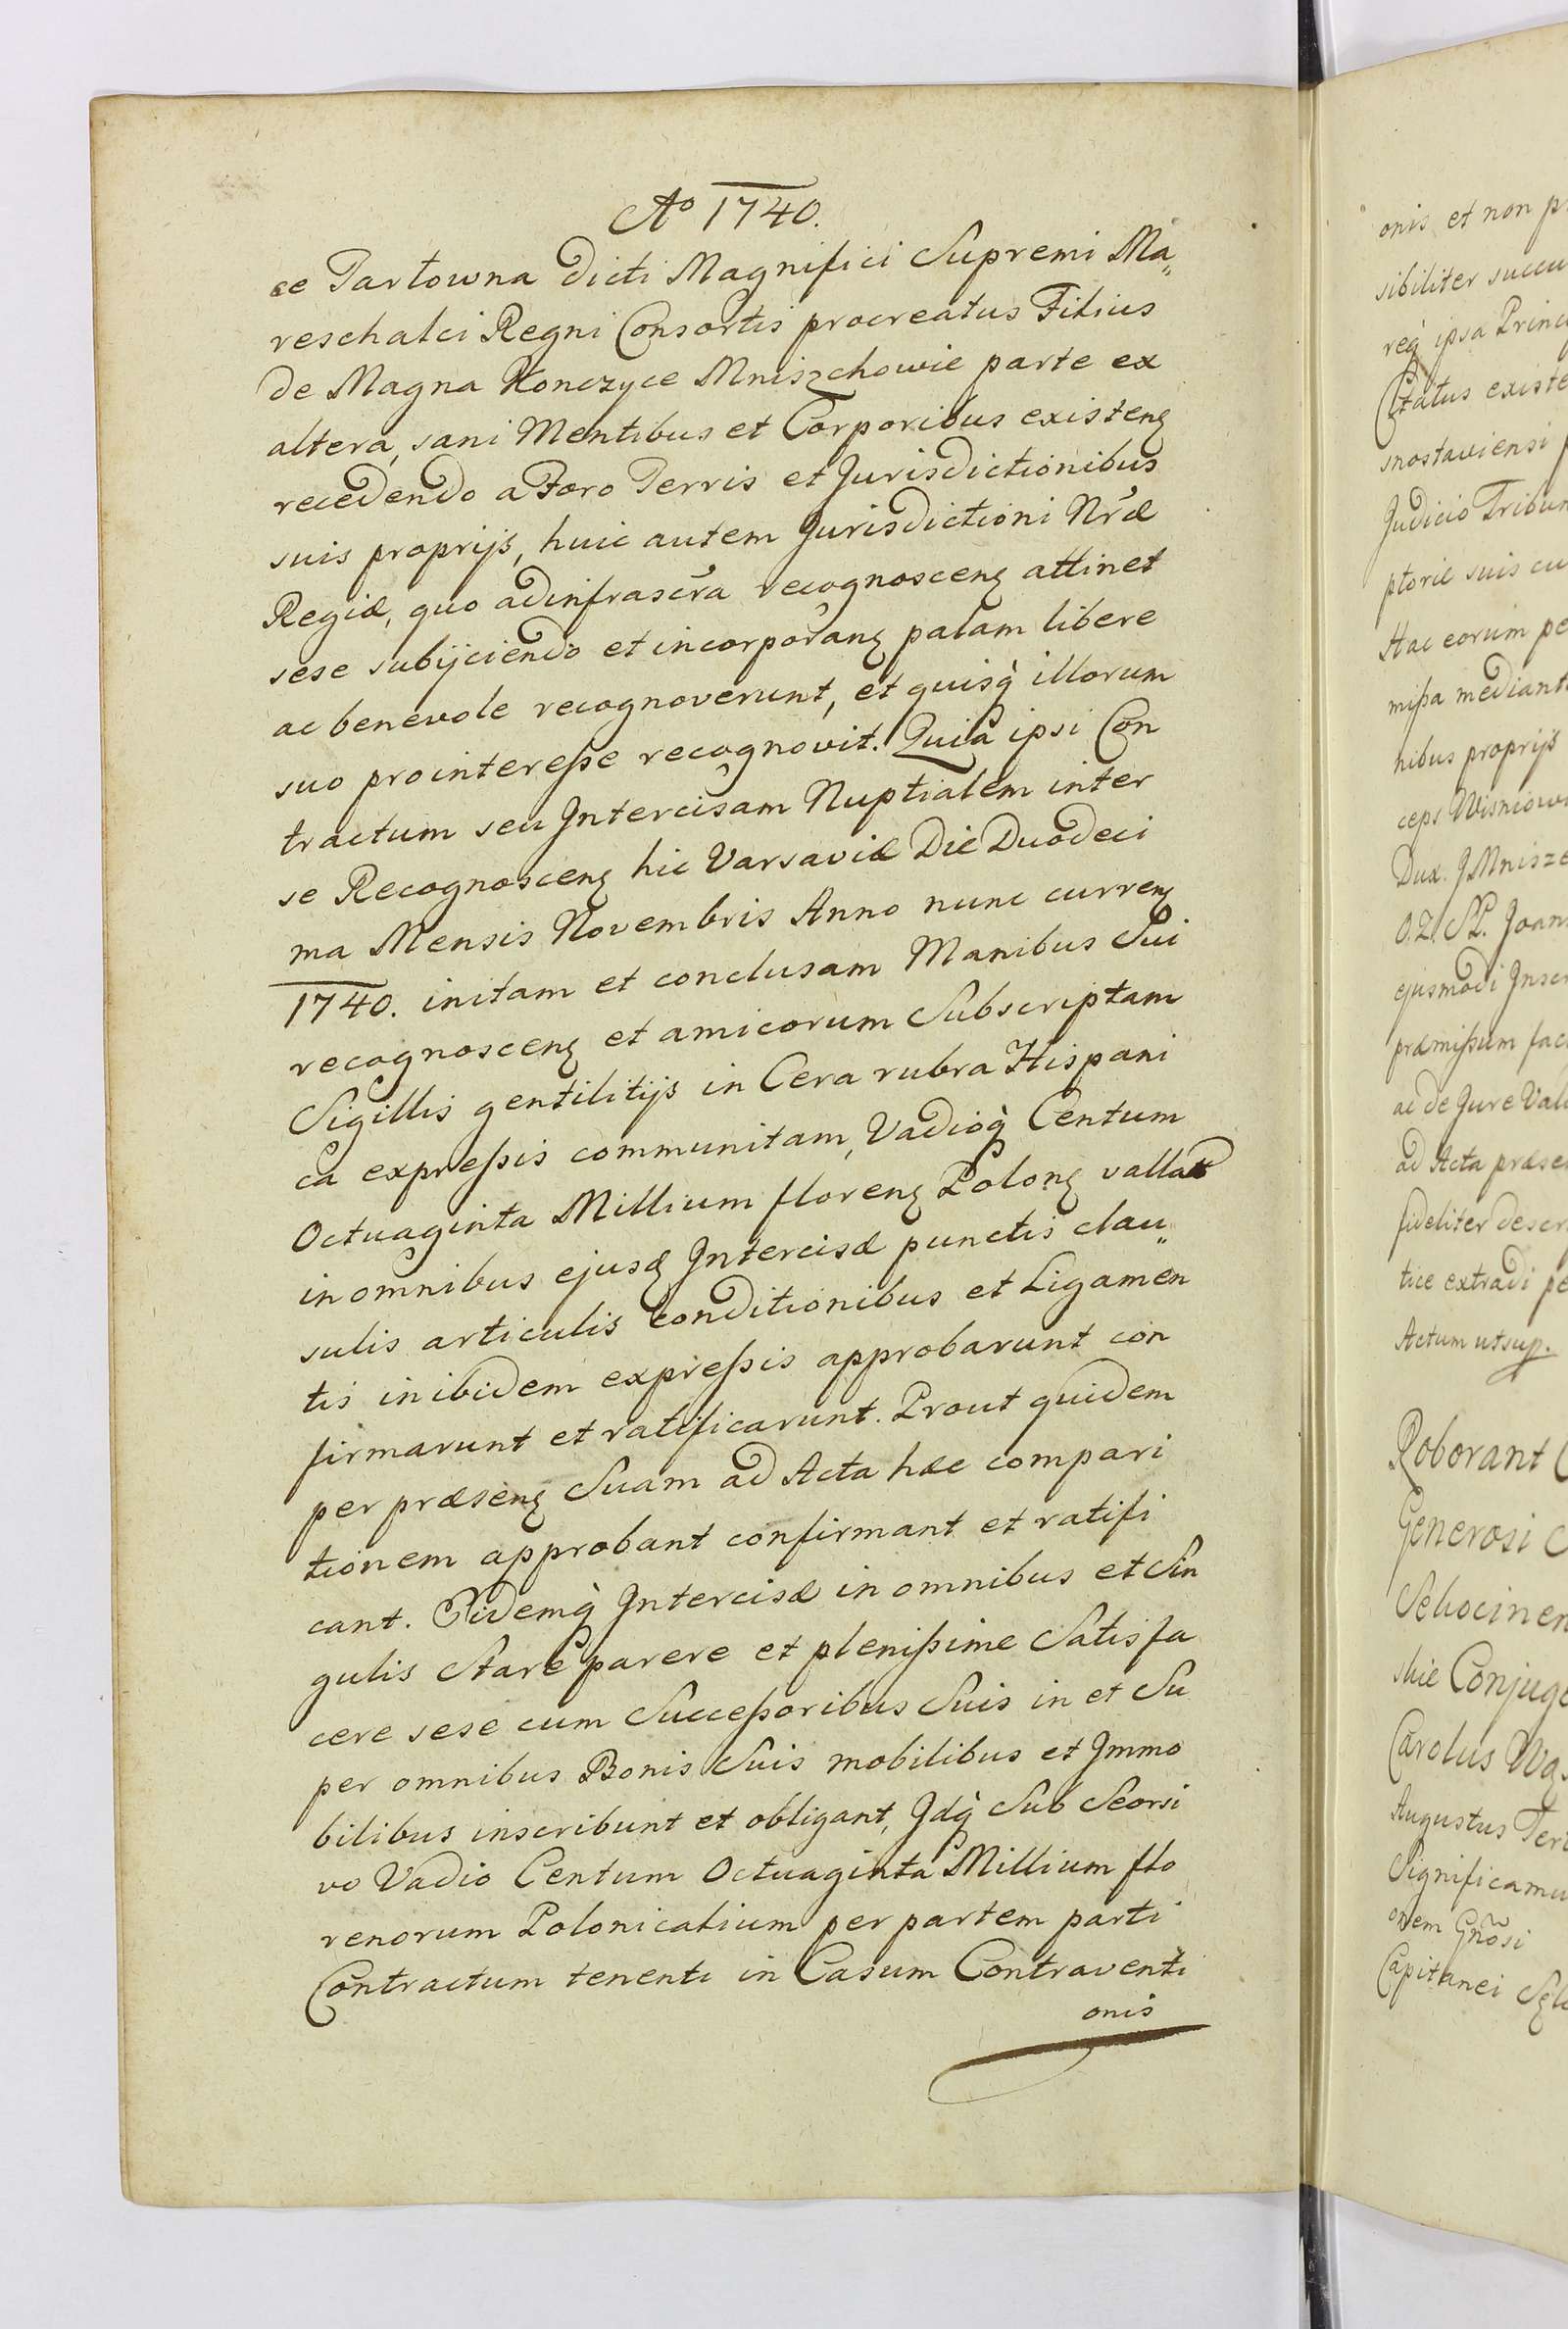 Aº 1740.
ce Tarłowna dicti Magnifici Supremi Ma„
reschalci Regni Consortis procreatus Filius
de Magna Konczyce Mniszchowie parte ex
altera, sani Mentibus et Corporibus existenꝫ
recedendo a Foro Terris et Jurisdictionibus
suis proprijs, huic autem Jurisdictioni Nrae
Regiæ, quo adinfrascra recognoscenꝫ attinet
sese subijciendo et incorporanꝫ palam libere
ac benevole recognoverunt, et quisq̀ illorum
suo prointereße recognovit. Quia ipsi Con
tractum seu Intercisam Nuptialem inter
se Recognoscenꝫ hic Varsaviæ Die Duodeci
ma Mensis Novembris Anno nunc currenꝫ
1740. initam et conclusam Manibus Sui
recognoscenꝫ et amicorum Subscriptam
Sigillis gentilitijs in Cera rubra Hispani
ca expreßis communitam, Vadioq̀ Centum
Octuaginta Millium florenꝫ Polonꝫ vallat
in omnibus ejusꝫ Intercisæ punctis clau„
sulis articulis conditionibus et Ligamen
tis inibidem expreßis approbarunt con
firmarunt et ratificarunt. Prout quidem
per præsenꝫ Suam ad Acta hæc compari
tionem approbant confirmant et ratifi
cant. Eidemq̀ Intercisæ in omnibus et Sin
gulis Stare parere et plenißime Satisfa
cere sese cum Succeßoribus Suis in et Su
per omnibus Bonis Suis mobilibus et Immo
bilibus inscribunt et obligant, Idq̀ Sub Seorsi
vo Vadio Centum Octuaginta Millium flo
renorum Polonicalium per partem parti
Contractum tenenti in Casum Contraventi
onis
onis et non
sibiliter
req̀ ipsa
Status
snostaviensi
Judicio
ptoriæ suis
Hac eorum
mißa
nibus proprijs
ceps
Dux.
O.Z. SP.
ejusmodi
præmißum
ac de Jure
ad Acta
fideliter
tice extradi
Actum ut sup.
Roborant
Generosi
Carolus
Augustus
Capitanei